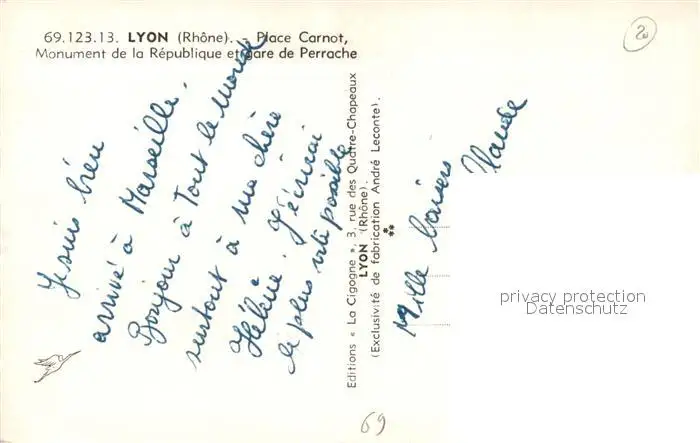 69.123.13. LYON (Rhône). - Place Carnot,
Monument de la République et gare de Perrache
Je suis bien
arrivé à Marseille.
Bonjour à tout le monde
surtout à ma chère
Hélène. J'écrirai
le plus vite possible
Editions « La Cigogne », 3, rue des Quatre-Chapeaux
LYON (Rhône).
(Exclusivité de fabrication André Leconte).
**
Mille baisers
Claude
20
69
privacy protection
Datenschutz